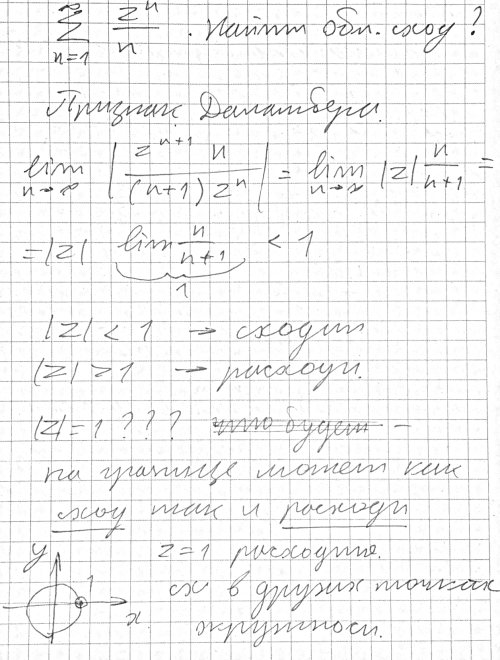 ∞
∑ zⁿ/n . Найти обл. сход?
n=1
Признак Даламбера.
lim n→∞ |zⁿ⁺¹ n / (n+1) zⁿ| = lim n→∞ |z| n/n+1 =
= |z| lim n/n+1 < 1
1
|z| < 1 → сходит
|z| > 1 → расходи.
|z| = 1 ??? что будет –
на границе может как
сход так и расходи
y z=1 расходится.
1 сх в других точках
x окружноси.